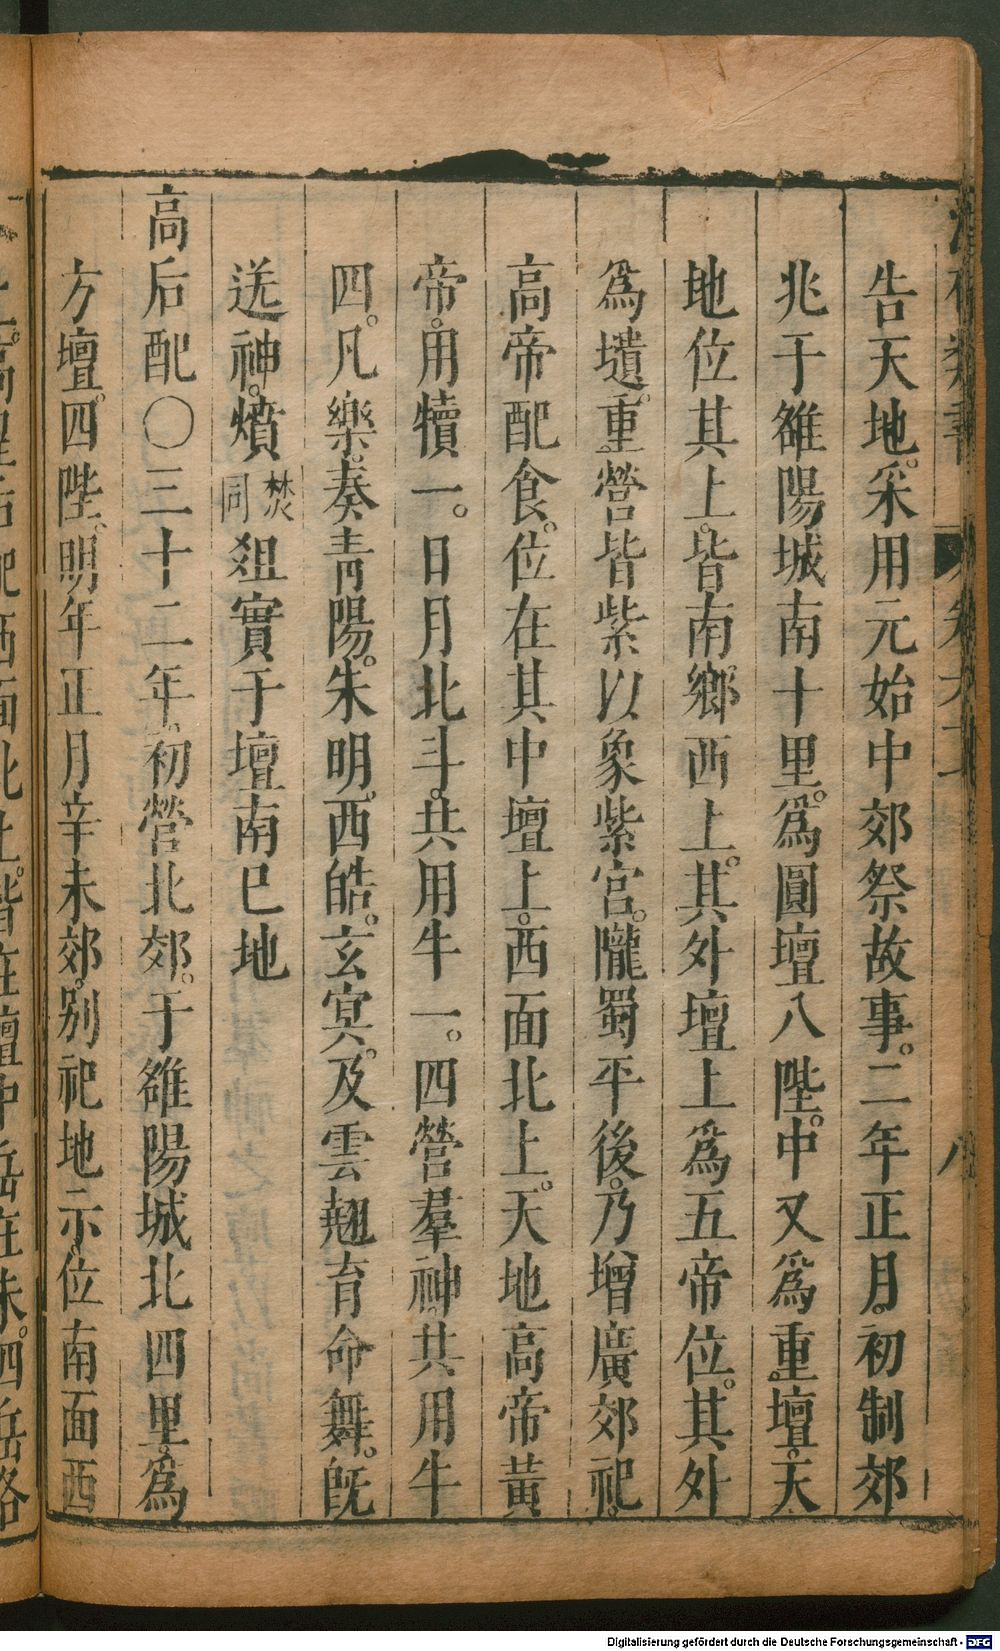 告天地。采用元始中郊祭故事。二年正月。初制郊
兆于雒陽城南十里。爲圓壇八陛。中又爲重壇。天
地位其上。皆南鄉西上。其外壇上爲五帝位。其外
爲壝。重營皆紫以象紫宮。隴蜀平後。乃增廣郊祀。
高帝配食。位在其中壇上。西面北上。天地高帝黃
帝。用犢一。日月北斗。共用牛一。四營羣神。共用牛
四。凡樂。奏青陽。朱明。西皓。玄冥。及雲翹育命舞。旣
送神。燌焚同俎實于壇南巳地
高后配〇三十二年。初營北郊。于雒陽城北四里。爲
方壇。四陛。明年正月辛未郊。別祀地示。位南面西
Digitalisierung gefördert durch die Deutsche Forschungsgemeinschaft - DFG